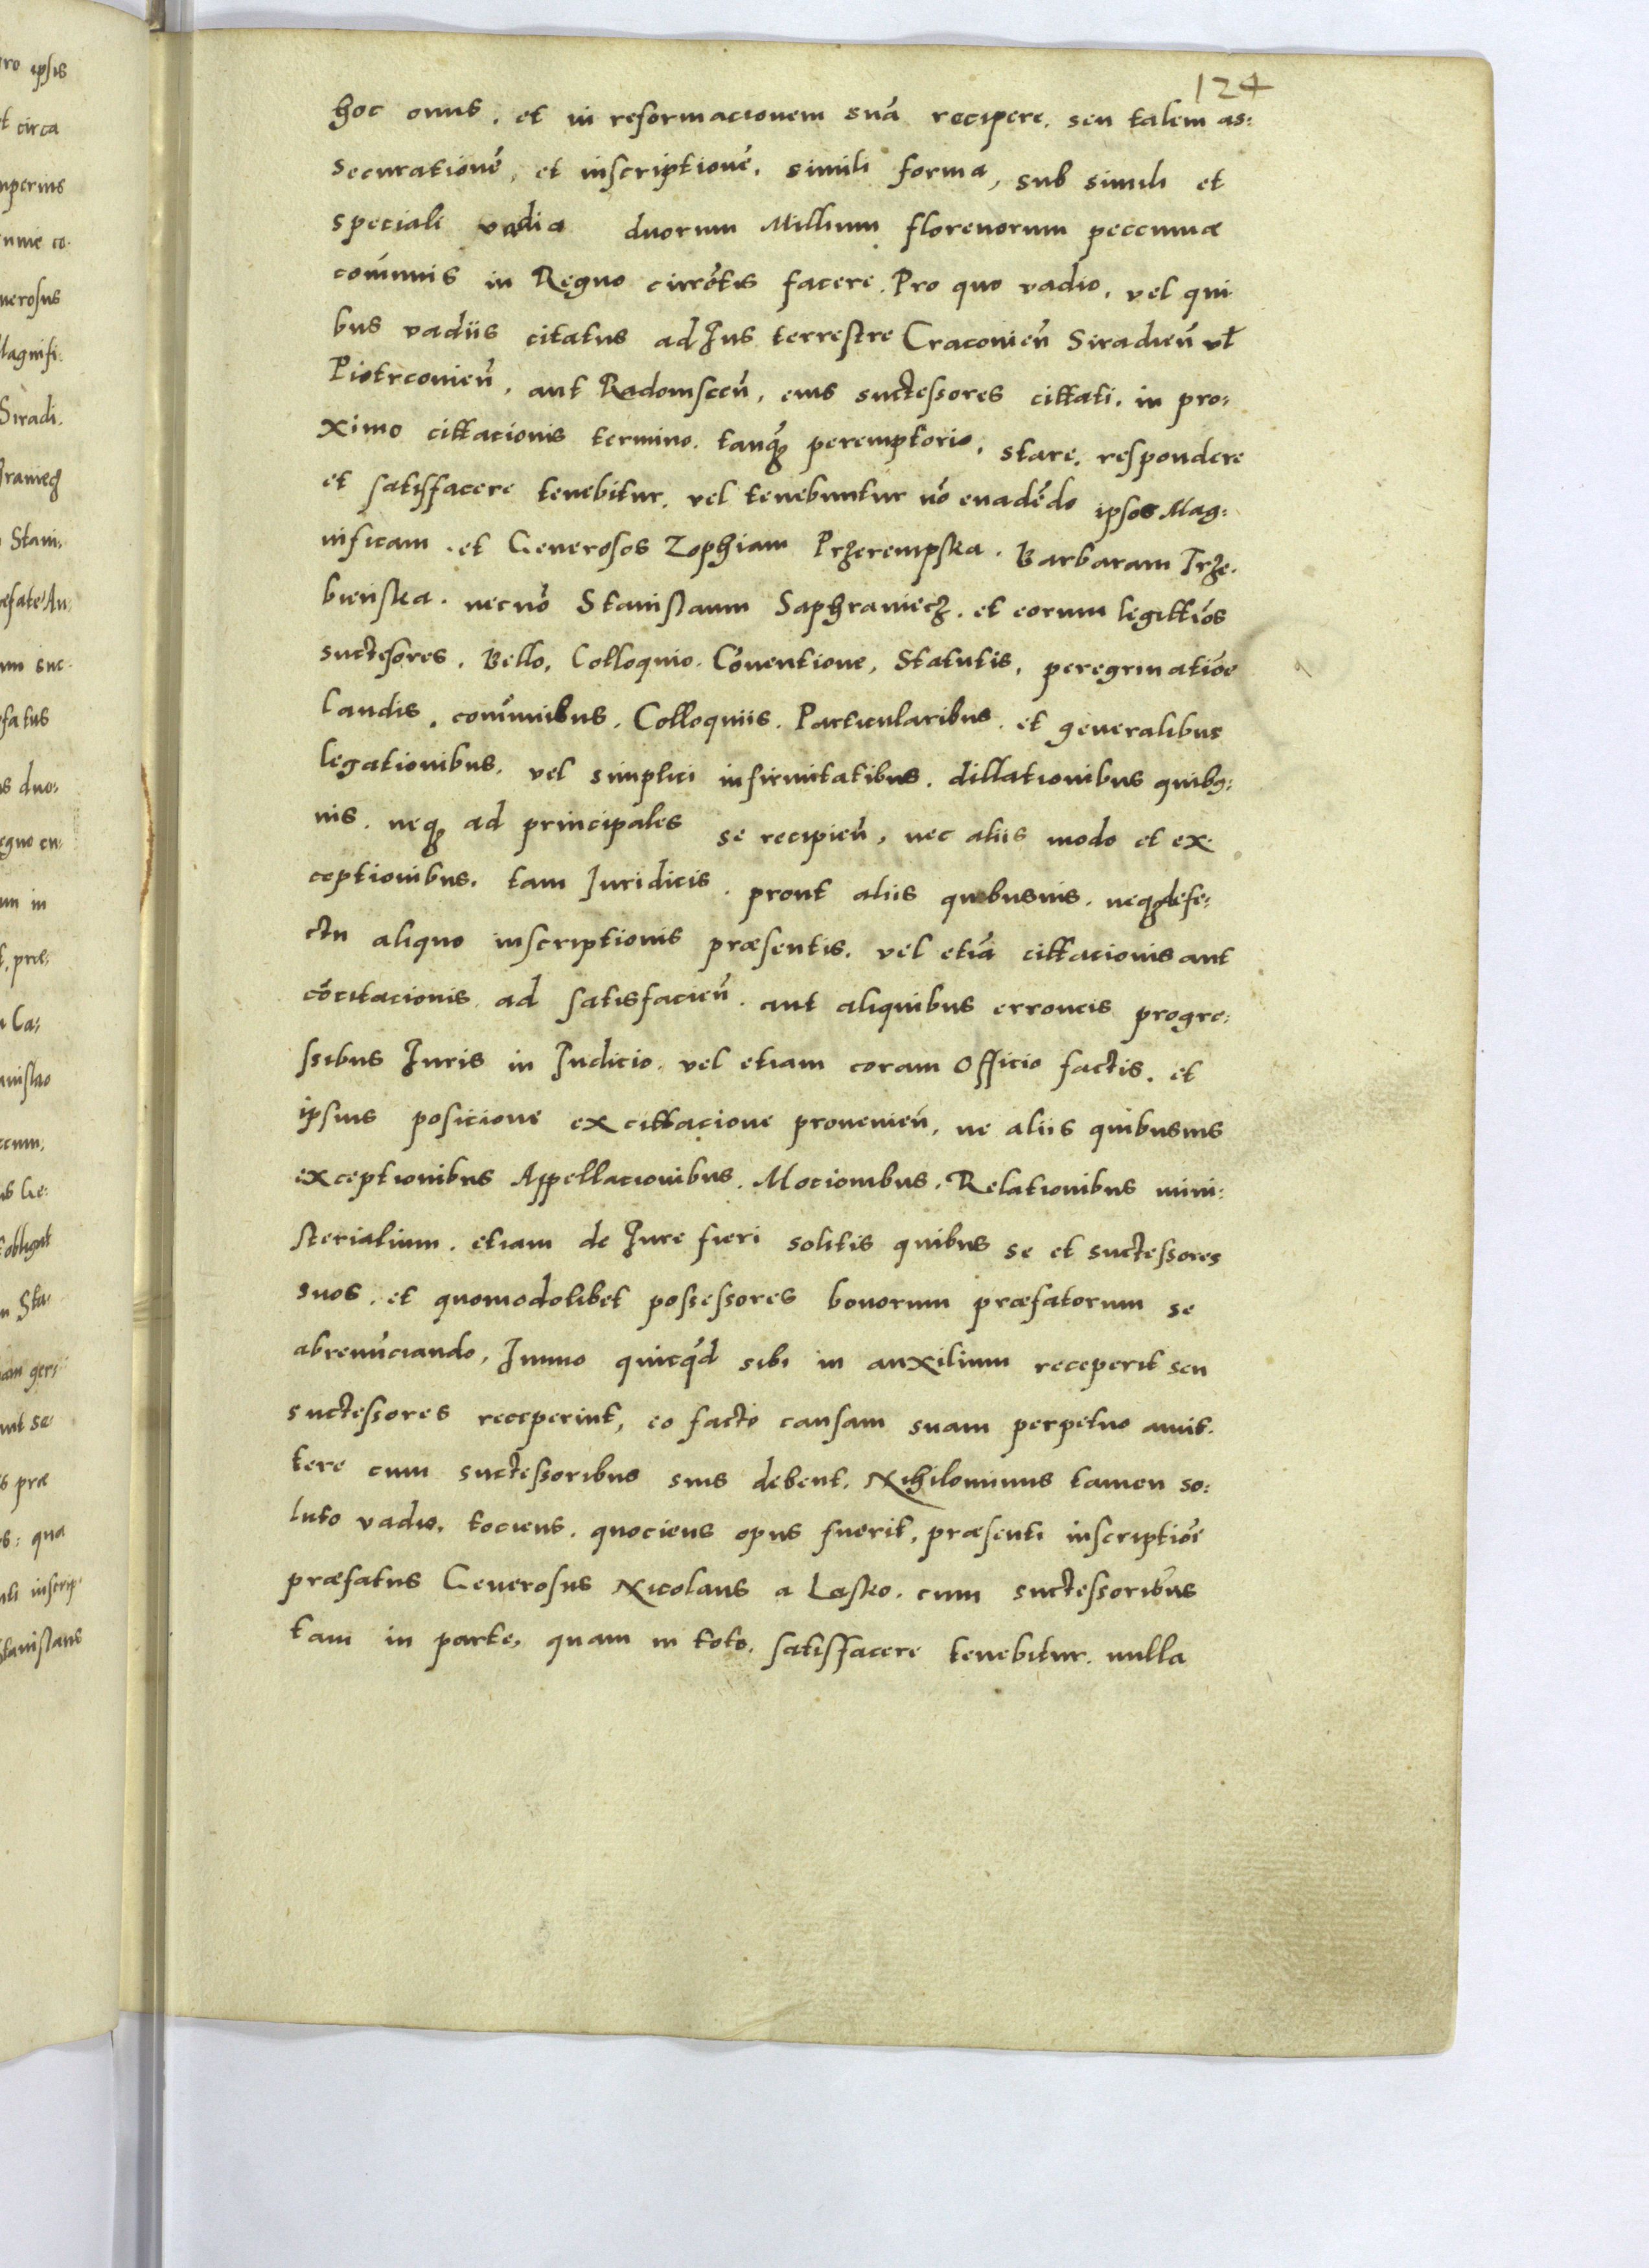 124
hoc onus. et in reformacionem suã recipere. seu talem as:
securationẽ, et inscriptionẽ. simili forma, sub simili et
speciali vadio duorum Millium florenorum peccuniæ
com̃unis in Regno currẽtis facere. Pro quo vadio. vel qui
bus vadiis citatus ad Jus terrestre Cracovieñ Siradieñ vł
Piotrcovieñ. aut Radomsceñ. eius suctessores cittati. in pro:
ximo cittacionis termino. tanqȝ peremptorio. stare. respondere
et satisfacere tenebitur. vel tenebuntur nõ euadẽdo ipsos Mag:
nificam. et Generosos Zophiam Przerempska. Barbaram Trze.
bienska. necnõ Stanislaum Saphraniecz. et eorum legittĩos
suctessores. Bello, Colloquio. Cõuentione, Statutis, peregrinatiõe
Laudis. com̃unibus. Colloquiis. Particularibus. et generalibus
legationibus. vel simplici infirmitatibus. dillationibus quibus:
uis. neqȝ ad principales se recipieñ, nec aliis modo et ex.
ceptionibus. tam Juridicis. prout aliis quibusuis. neqȝ defe:
ctu aliquo inscriptionis præsentis. vel etiã cittacionis aut
cõcitacionis ad satisfacieñ. aut aliquibus erroneis progre:
ssibus Juris in Judicio. vel etiam coram Officio factis. et
ipsius posicione ex cittacione prouenieñ, ne aliis quibusuis
exceptionibus Appellacionibus. Mocionibus. Relationibus mini:
sterialium. etiam de Jure fieri solitis quibus se et suctessores
suos. et quomodolibet possessores bonorum præfatorum se
abrenũciando, Immo quicq̃d sibi in auxilium receperit seu
suctessores receperint, eo facto causam suam perpetuo amit.
tere cum suctessoribus suis debent. Nihilominus tamen so:
luto vadio. tociens. quociens opus fuerit, præsenti inscriptiõe
præfatus Generosus Nicolaus a Lasko. cum suctessoribus
tam in parte, quam in toto. satisfacere tenebitur. nulla